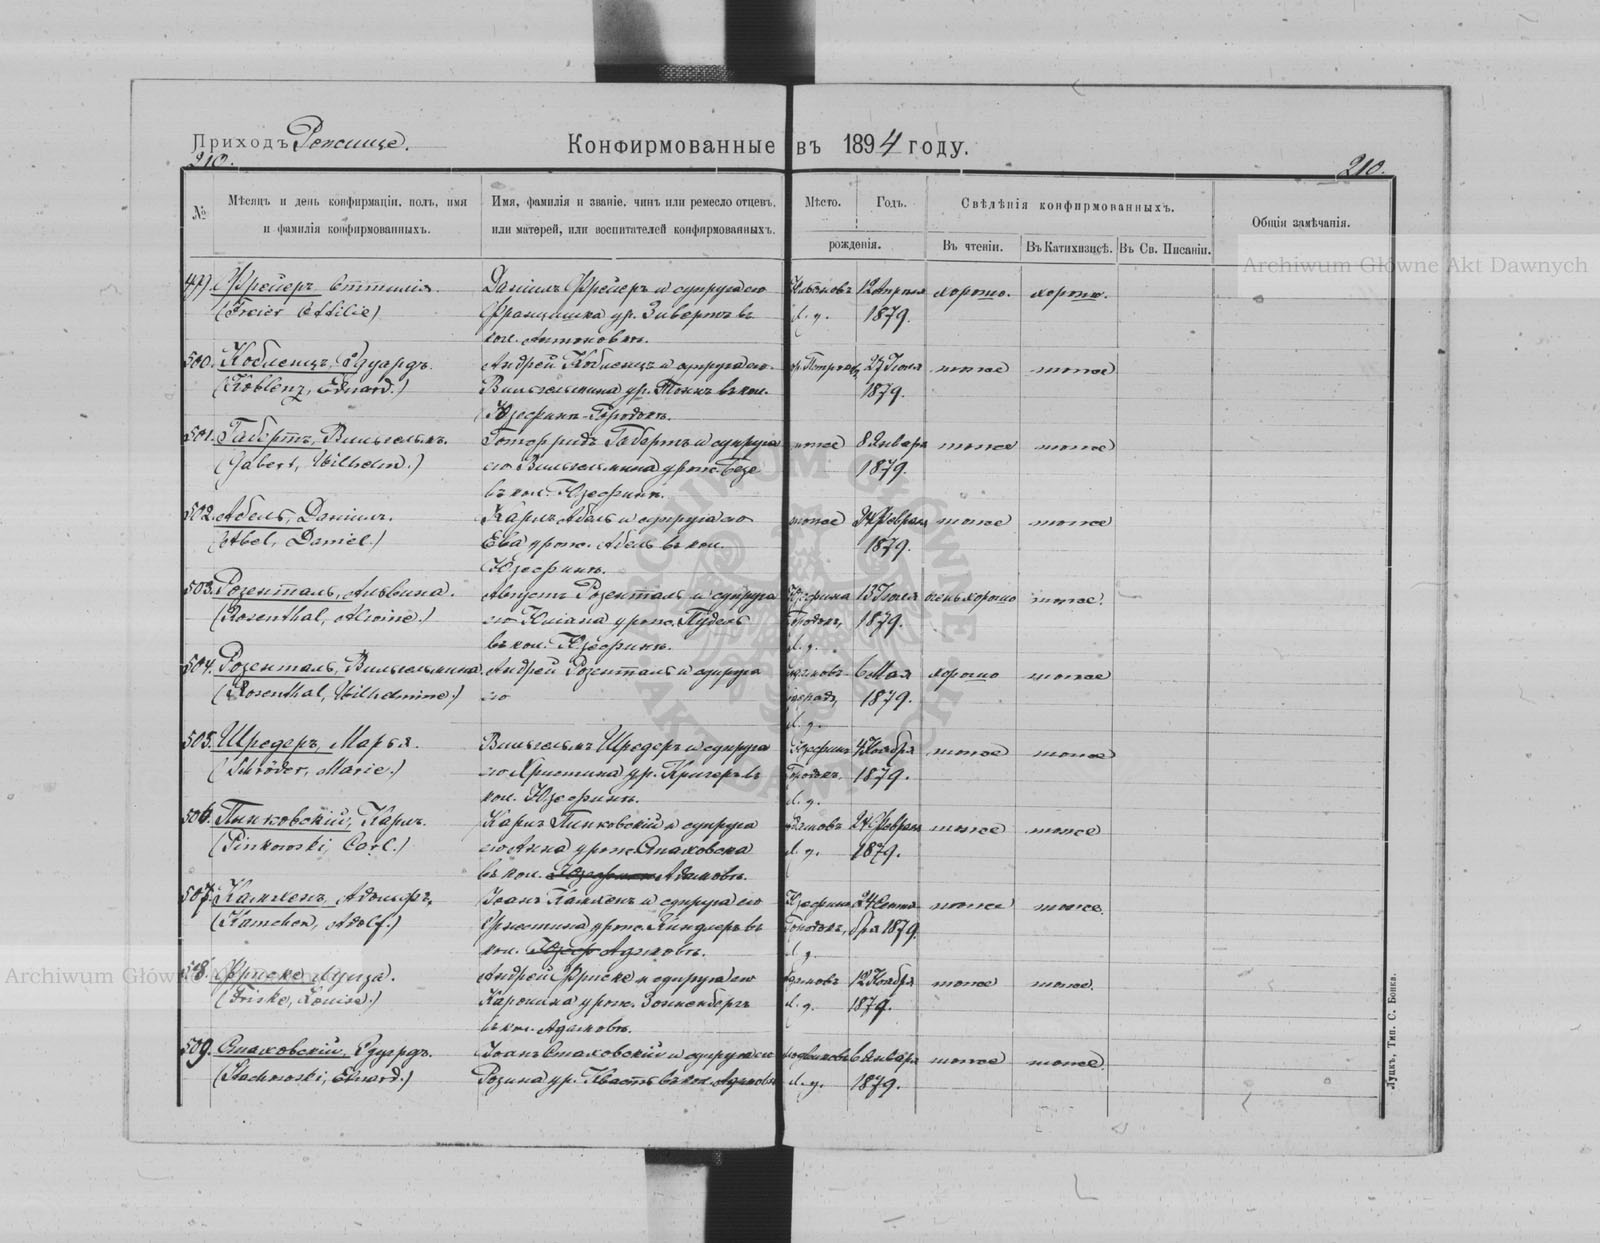 Приходъ Рожище.
Конфирмованные въ 1894 году.
210.
210.
№
Мѣсяцъ и день конфирмаціи, полъ, имя
и фамилія конфирмованныхъ.
Имя, фамилія и званіе, чинъ или ремесло отцевъ,
или матерей, или воспитателей конфирмованныхъ.
Мѣсто.
Годъ.
рожденія.
Свѣдѣнія конфирмованныхъ.
Въ чтеніи.
Въ Катихизисѣ.
Въ Св. Писаніи.
Общія замѣчанія.
Archiwum Główne Akt Dawnych
Фрейеръ Оттилія. Даніилъ Фрейеръ и супруга его 12 Апрѣля хорошо. хорошо.
(Freier Ottilie) Францишка ур. Зивертъ въ л. у. 1879.
кол. Антоновкѣ.
500. Кобленцъ, Эдуардъ. Андрей Кобленцъ и супруга его 27 Іюля тоже тоже
(Koblenz, Eduard.) Вильгельмина ур. въ кол. 1879.
Юзефинъ-Городокъ.
501. Габертъ, Вильгельмъ. Готфридъ Габертъ и супруга тоже 8 Января тоже тоже
(Gabert, Wilhelm.) его Вильгельмина урож. 1879.
въ кол. Юзефинѣ.
502. Абель, Даніилъ. Карлъ Абель и супруга его тоже 24 Февраля тоже тоже
(Abel, Daniel.) Ева урож. Абель въ кол. 1879.
Юзефинѣ.
503. Розенталь, Альвина. Августъ Розенталь и супруга 13 Іюля очень хорошо тоже.
(Rosenthal, Alwine.) его Юліана урож. 1879.
въ кол. Юзефинѣ. л. у.
504. Розенталь, Вильгельмина. Андрей Розенталь и супруга 6 Мая хорошо тоже
(Rosenthal, Wilhelmine.) его 1879.
л. у.
505. Шредеръ, Марья. Вильгельмъ Шредеръ и супруга Юзефинъ 4 Ноября тоже тоже
(Schröder, Marie.) его Христина ур. Кригеръ въ Городокъ, 1879.
кол. Юзефинѣ. л. у.
506. Пинковскій, Карлъ. Карлъ Пинковскій и супруга 24 Февраля тоже тоже
(Pinkowski, Carl.) его Анна урож. Стаховска л. у. 1879.
въ кол. Адамовкѣ.
507. Камхенъ, Адольфъ. Іоанъ Камхенъ и супруга его Юзефинъ 24 Сентя- тоже тоже.
(Kamchen, Adolf.) Христина урож. Киндлеръ въ Городокъ, бря 1879.
кол. Адамовкѣ. л. у.
508. Фриске, Луиза. Андрей Фриске и супруга его 12 Ноября тоже тоже.
(Friske, Louise.) Каролина урож. Зонненбергъ л. у. 1879.
въ кол. Адамовкѣ.
509. Стаховскій, Эдуардъ. Іоанъ Стаховскій и супруга его 6 Января тоже тоже.
(Stachowski, Eduard.) Розина ур. въ кол. Адамовкѣ л. у. 1879.
Archiwum Główne
Луцкъ, Тип. С. Бонка.
ARCHIWUM GŁÓWNE
AKT DAWNYCH